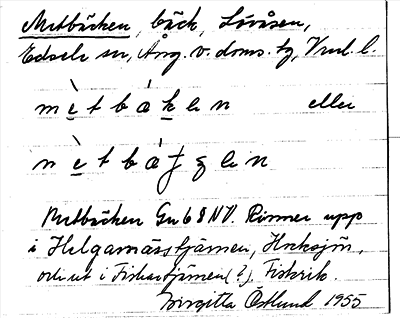 Metbäcken, bäck, Lövåsen,
Edsele sn, Ång. v. doms. tg, Vnl. l.
mètbáken eller
nètbágen
Metbäcken Gu 68 NV. Rinner upp
i Helgamässtjärnen, Hocksjön,
och ut i Fiskartjärnen (?), Fiskrik.
Birgitta Östlund 1955